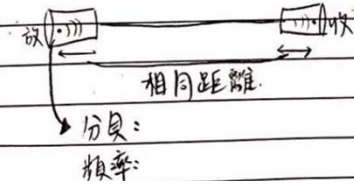 放 收
相同距離.
分貝:
頻率: